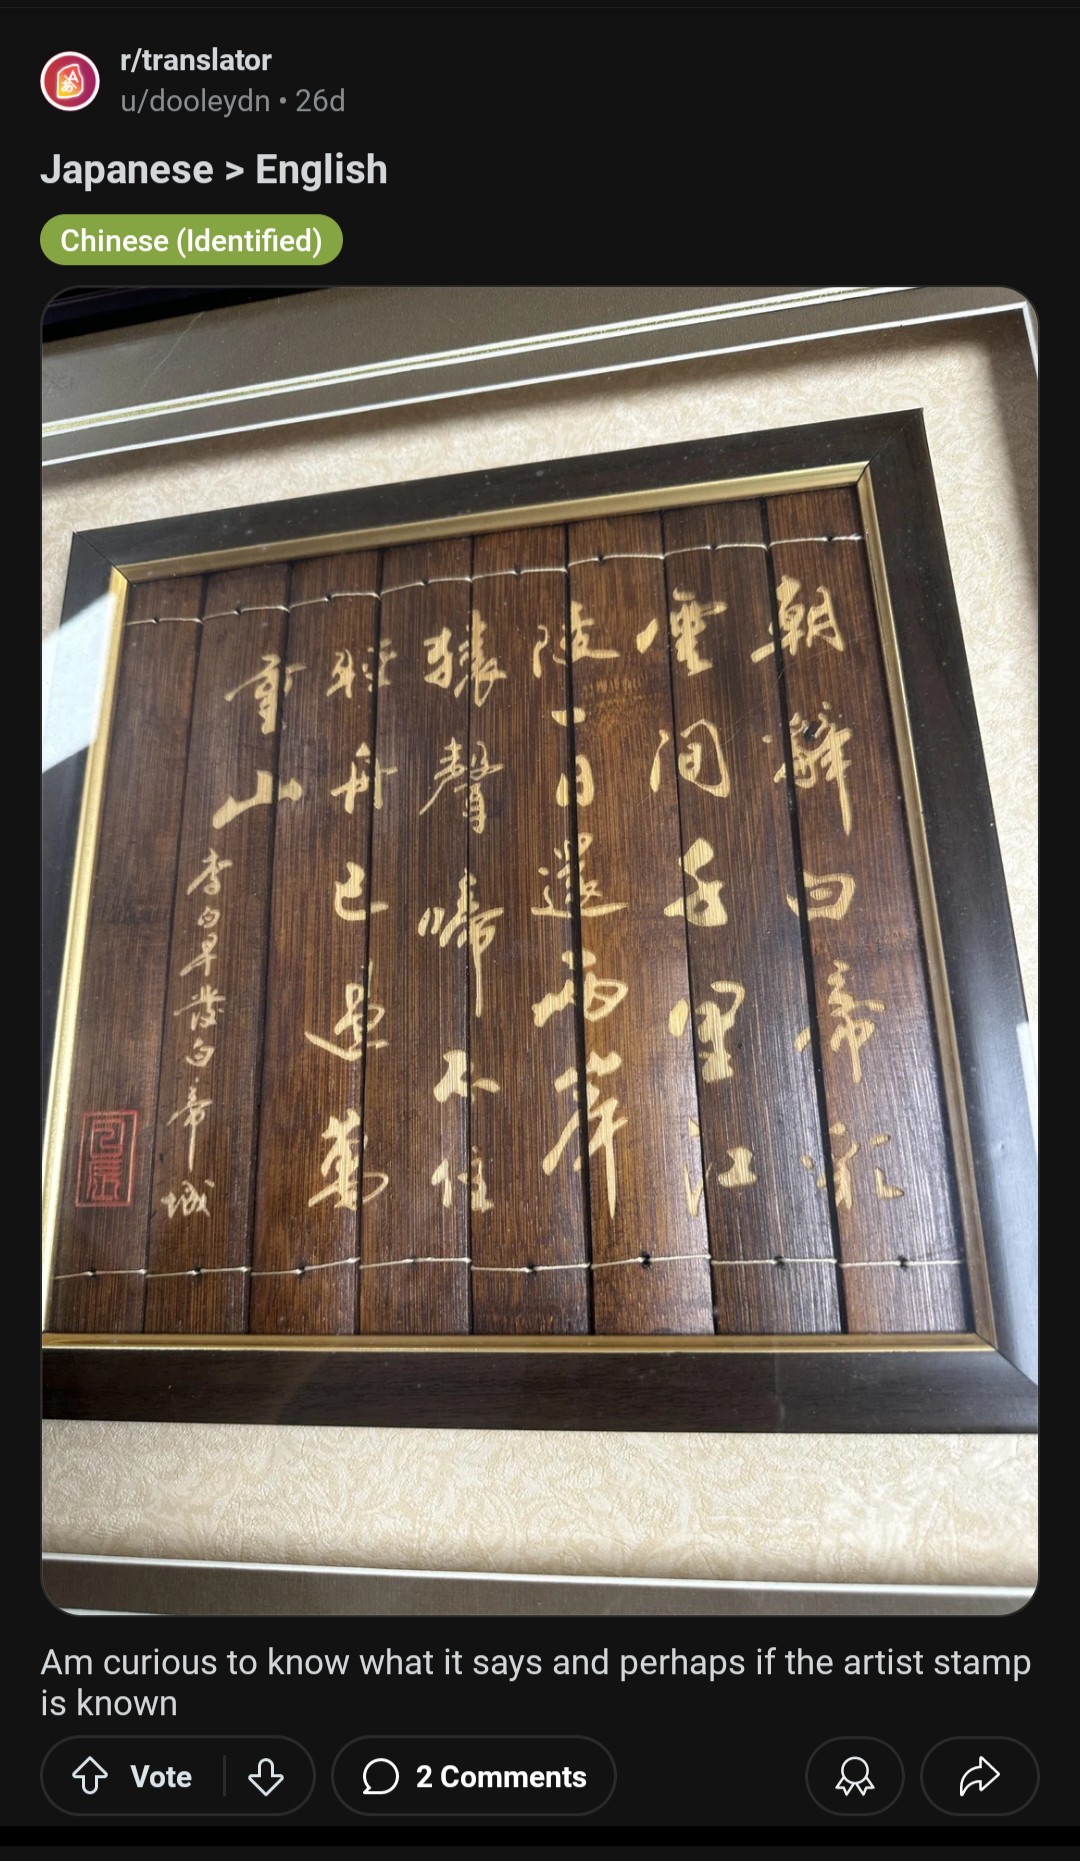 r/translator
u/dooleydn • 26d
Japanese > English
Chinese (Identified)
朝辭白帝彩
雲間千里江
陵一日還兩岸
猿聲啼不住
輕舟已過萬
重山
李白早發白帝城
Am curious to know what it says and perhaps if the artist stamp
is known
Vote
2 Comments